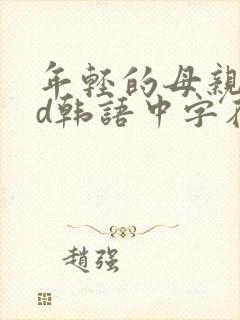 年輕的母親
d韩語中字在
趙强